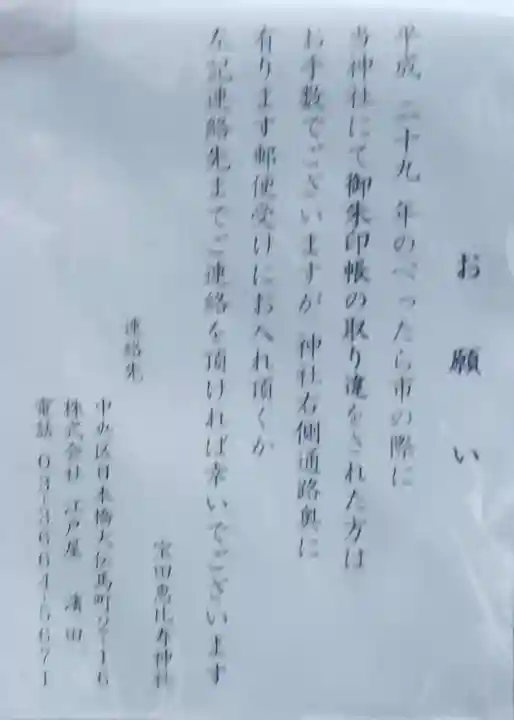 お願い
平成 二十九 年のべったら市の際に
当神社にて御朱印帳の取り違をされた方は
お手数でございますが 神社右側通路奥に
有ります郵便受けにお入れ頂くか
左記連絡先までご連絡を頂ければ幸いでございます
宝田恵比寿神社
連絡先
中央区日本橋大伝馬町2-16
株式会社 江戸屋 濱田
電話 03-3664-5671